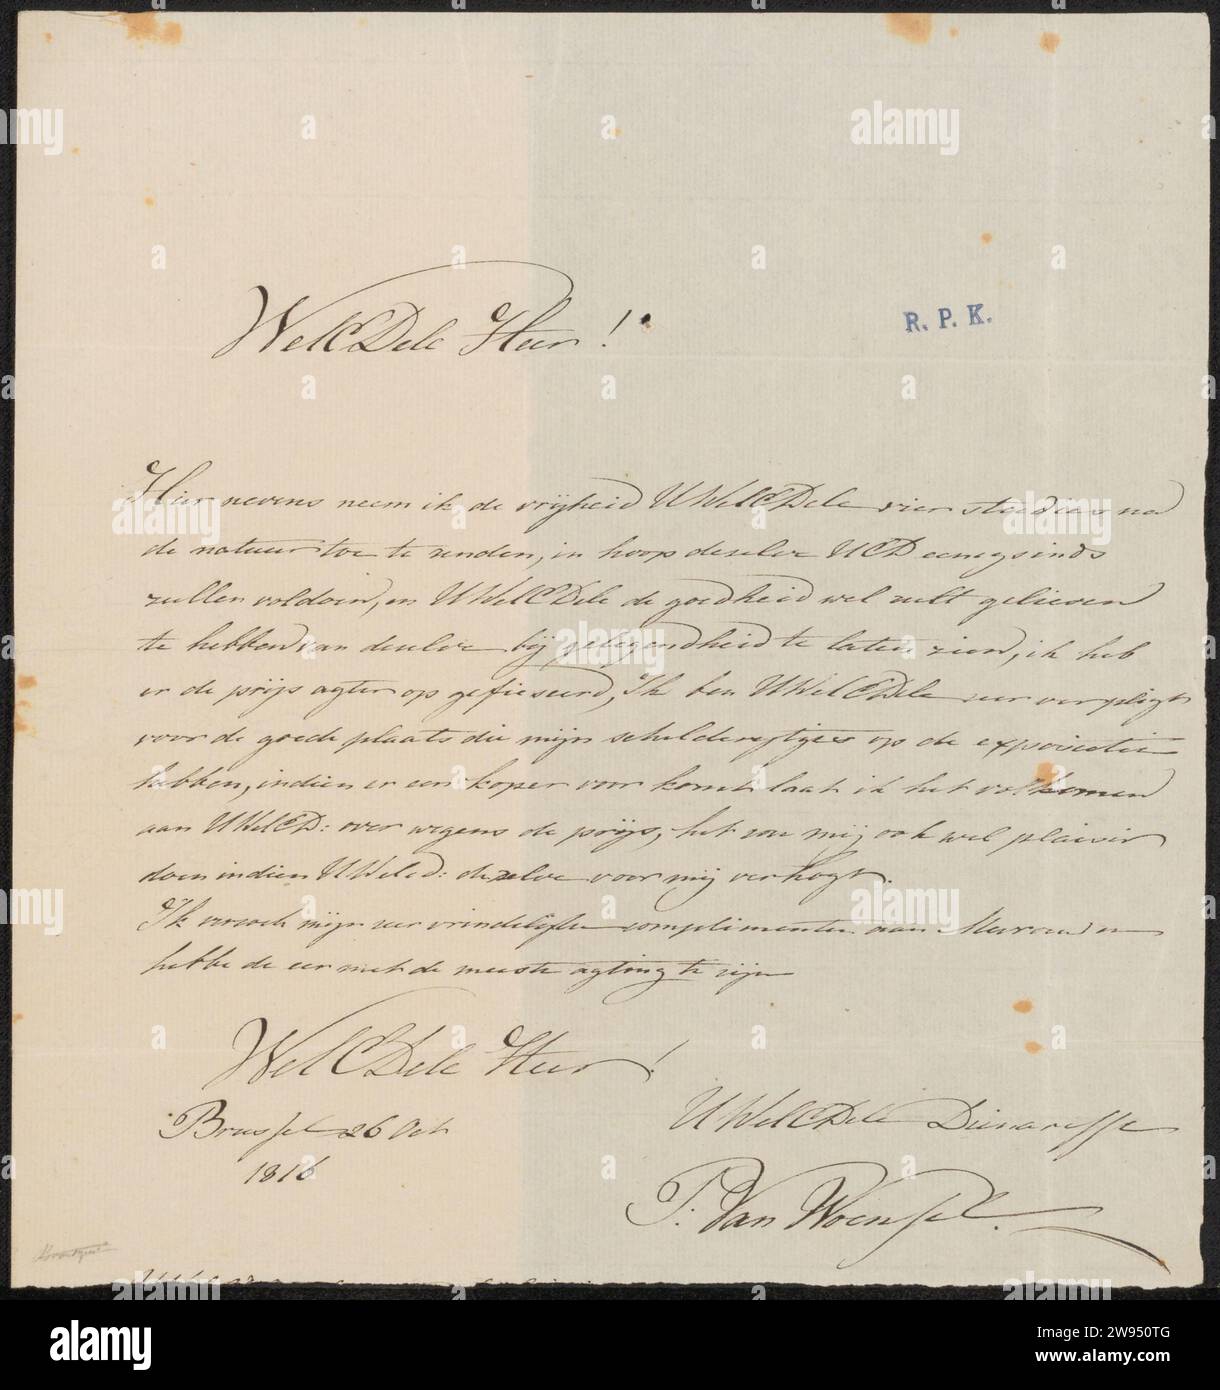 WelEDele Heer!
R. P. K.
Hier nevens neem ik de vrijheid UWelEDele vier steedies na
de natuur toe te zenden, in hoop deselve UED eenigsinds
zullen voldoen, en UWelEDele de goedheid wel zult gelieven
te hebben van deselve bij gelegendheid te laten zien, ik heb
er de prijs agter op gefieseerd, Ik ben UWelEDele zeer verpligt
voor de goede plaats die mijn schildereftjes op de expositie
hebben, indien er een koper voor komt laat ik het volkomen
aan UWelED: over wegens de prijs, het zou mij ook wel plaisir
doen indien UWeled: deselve voor mij verkogt.
Ik versoek mijn zeer vrindelijke complimenten aan Mevrouw en
hebbe de eer met de meeste agting te zijn
WelEDele Heer!
UWelEDele Dienaresse
Brussel 26 Oct
1816
P: Van Woensel.
alamy
Image ID: 2W950TG
www.alamy.com